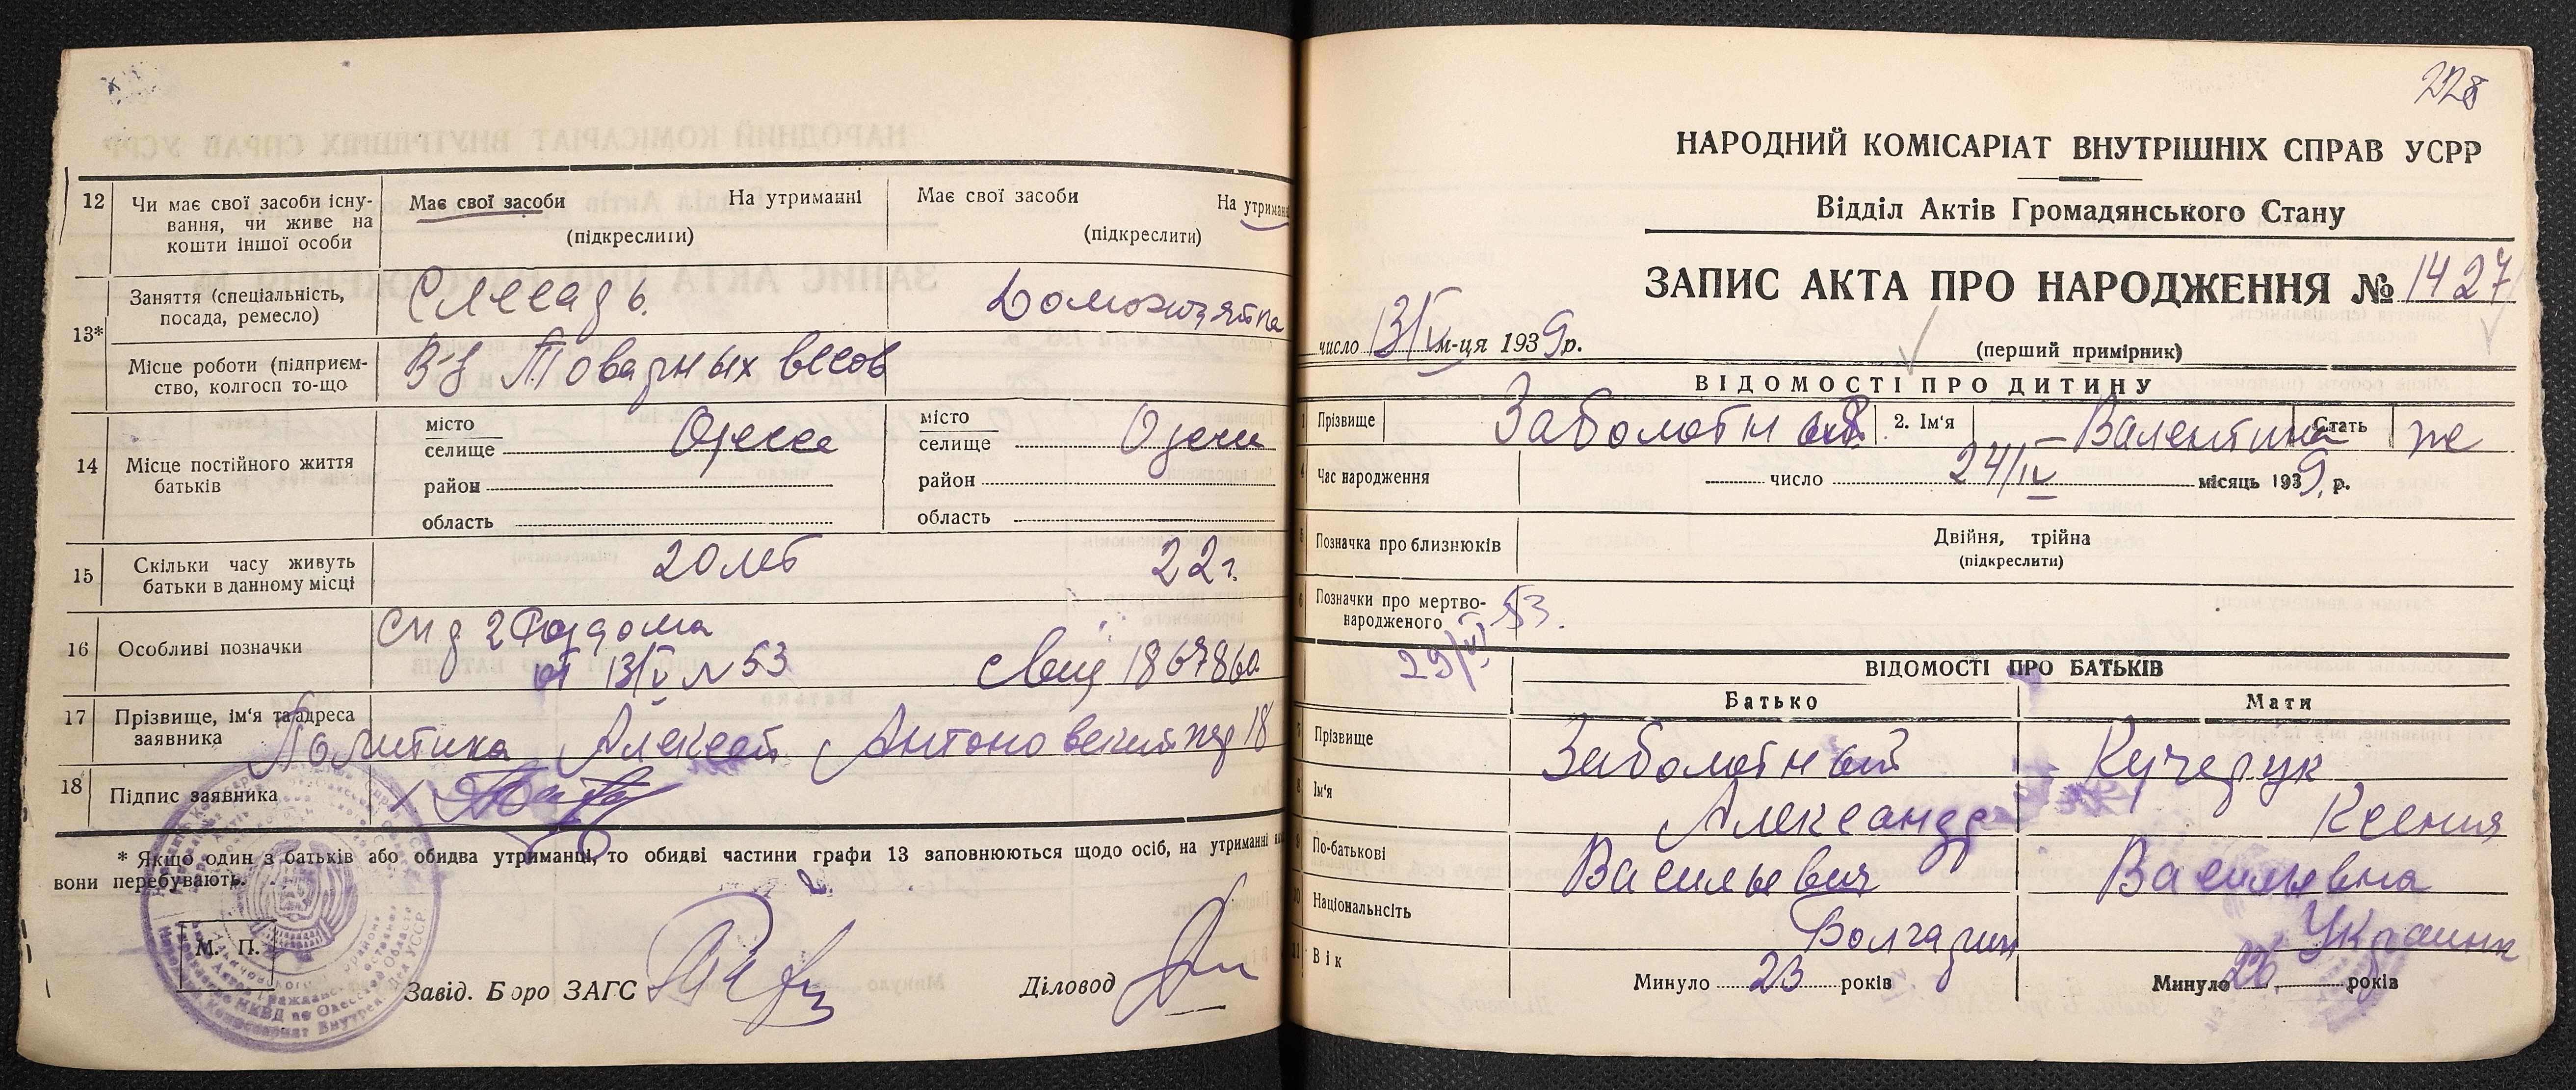 12
Чи має свої засоби існу-
вання, чи живе на
кошти іншої особи
Має свої засоби
На утриманні
(підкреслити)
Має свої засоби
На утриманні
(підкреслити)
13*
Заняття (спеціальність,
посада, ремесло)
Слесарь.
Домохозяйка
Місце роботи (підприєм-
ство, колгосп то-що
З-д Товарных весов
14
Місце постійного життя
батьків
місто
селище
Одесса
район
область
місто
селище
Одесса
район
область
15
Скільки часу живуть
батьки в данному місці
20 лет
22 г.
16
Особливі позначки
2 Роддома
от 13/V N 53
17
Прізвище, ім'я та адреса
заявника
Алексей
18
Підпис заявника
* Якщо один з батьків або обидва утриманці, то обидві частини графи 13 заповнюються щодо осіб, на утриманні
вони перебувають.
М. П.
Завід. Бюро ЗАГС
Діловод
228
НАРОДНИЙ КОМІСАРІАТ ВНУТРІШНІХ СПРАВ УСРР
Відділ Актів Громадянського Стану
ЗАПИС АКТА ПРО НАРОДЖЕННЯ № 1427
число 13/V м-ця 1939 р.
(перший примірник)
ВІДОМОСТІ ПРО ДИТИНУ
1 Прізвище
2. Ім'я
Валентина
Стать
ж
4 Час народження
число 24/IV місяць 1939 р.
5 Позначка про близнюків
Двійня, трійна
(підкреслити)
6 Позначки про мертво-
народженого
ВІДОМОСТІ ПРО БАТЬКІВ
Батько
Мати
7 Прізвище
Заболотный
Кучерук
8 Ім'я
Александр
Ксения
9 По-батькові
Васильевич
Васильевна
10 Національність
Болгарин
Украинк
11 Вік
Минуло 23 років
Минуло 26 років